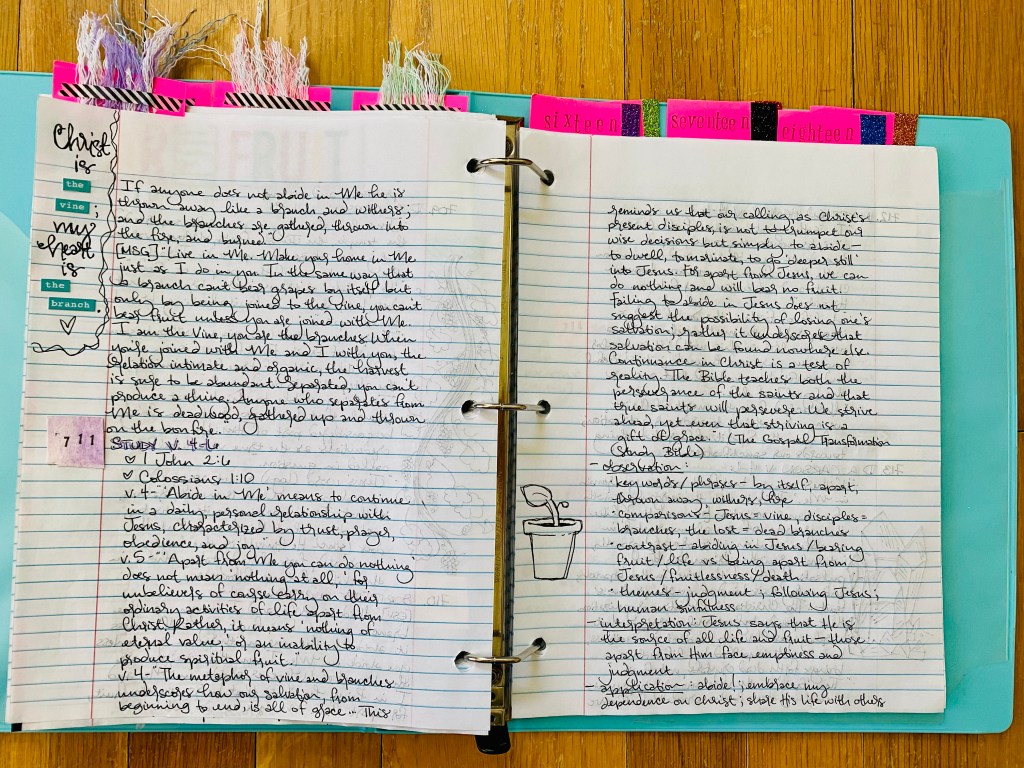 sixteen
seventeen
eighteen
Christ
is
the
vine;
my
heart
is
the
branch.
If anyone does not abide in Me he is
thrown away like a branch and withers;
and the branches are gathered, thrown into
the fire, and burned.
[MSG] "Live in Me. Make your home in Me
just as I do in you. In the same way that
a branch can't bear grapes by itself but
only by being joined to the vine, you can't
bear fruit unless you are joined with Me.
I am the Vine, you are the branches. When
you're joined with Me and I with you, the
relation intimate and organic, the harvest
is sure to be abundant. Separated, you can't
produce a thing. Anyone who separates from
Me is deadwood, gathered up and thrown
on the bonfire.
711
STUDY V. 4-6
♡ 1 John 2:6
♡ Colossians 1:10
v. 4- "'Abide in Me' means to continue
in a daily, personal relationship with
Jesus, characterized by trust, prayer,
obedience, and joy."
v. 5- "'Apart from Me you can do nothing'
does not mean 'nothing at all,' for
unbelievers of course carry on their
ordinary activities of life apart from
Christ. Rather, it means 'nothing of
eternal value,' or an inability to
produce spiritual fruit."
v. 4- "The metaphor of vine and branches
underscores how our salvation, from
beginning to end, is all of grace... This
reminds us that our calling, as Christ's
present disciples, is not to trumpet our
wise decisions but simply to abide—
to dwell, to marinate, to go 'deeper still'
into Jesus. For apart from Jesus, we can
do nothing and will bear no fruit.
Failing to abide in Jesus does not
suggest the possibility of losing one's
salvation; rather it underscores that
salvation can be found nowhere else.
Continuance in Christ is a test of
reality. The Bible teaches both the
perseverance of the saints and that
true saints will persevere. We strive
ahead, yet even that striving is a
gift of grace." (The Gospel Transformation
Study Bible)
- observation:
· key words/phrases - by itself, apart,
thrown away, withers, fire
· comparisons - Jesus = vine, disciples =
branches, the lost = dead branches
· contrast - abiding in Jesus/bearing
fruit/life vs being apart from
Jesus/fruitlessness/death
· themes - judgment; following Jesus;
human sinfulness
- interpretation: Jesus says that He is
the source of all life and fruit — those
apart from Him face emptiness and
judgment
- application: abide!; embrace my
dependence on Christ; share His life with others